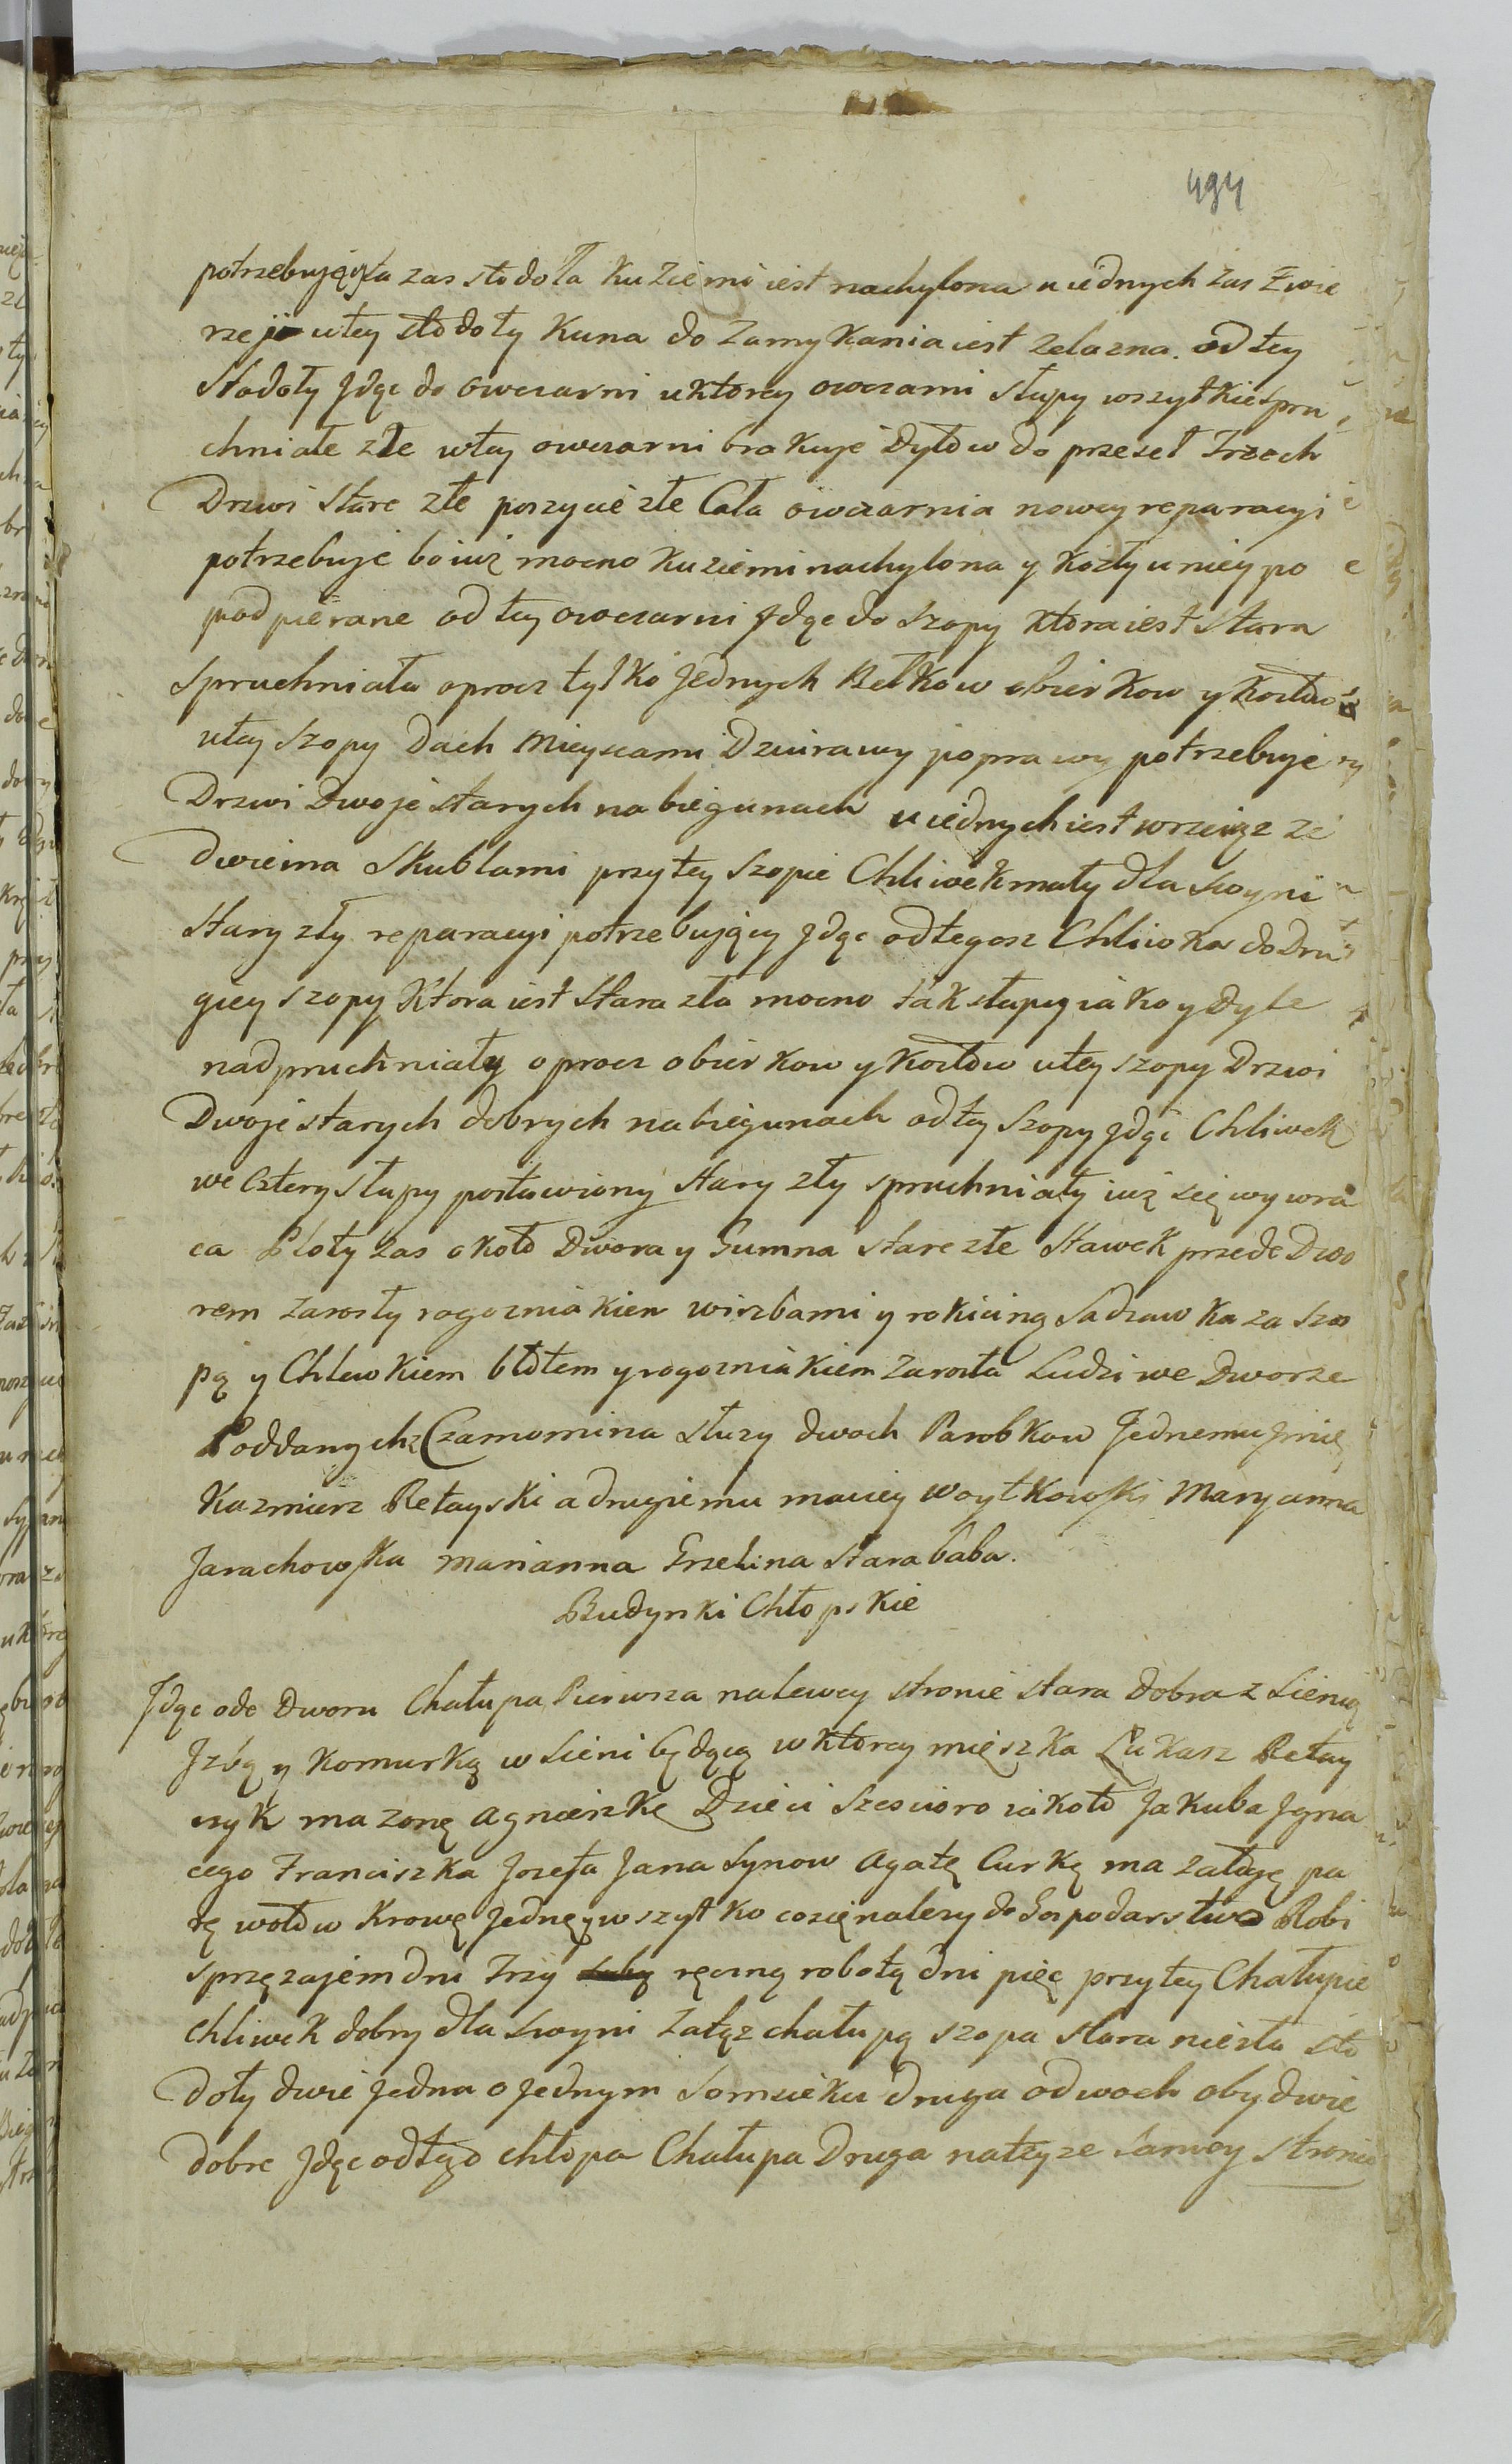 494
potrzebujęcy ta zas stodoła ku ziemi iest nachylona u iednych zas zwie
rzeji utey stodoły Kuna do Zamykania iest zelazna. od tey
Stodoły Jdąc do Owczarni uktorey owczarni słupy wszytkie spru
chniałe złe utey owczarni brakuje Dylow do przeseł Trzech
Drzwi stare złe poszycie złe Cała owczarnia nowey reparacyi
potrzebuje bo iuż mocno ku ziemi nachylona y kozły u niey po
podpierane od tey owczarni Jdąc do szopy ktora iest stara
spruchniała oprocz tylko jednych Belkow obierkow y kozłow
utey szopy Dach Mieyscami Dziurawy poprawy potrzebuje
Drzwi Dwoje starych na biegunach u iednych iest wrzeiąz ze
dwiema skublami przytey szopie Chliwek mały dla swyni
stary zły reparacyi potrzebujący Jdąc od tegosz Chliwka do Dru
giey szopy Ktora iest stara zła mocno tak słupy iako y dyle
nadpruchniały oprocz obierkow y kozłow utey szopy Drzwi
Dwoje starych dobrych na biegunach od tey szopy Jdąc Chliwek
we cztery słupy postawiony stary zły spruchniały iuż się wywra
ca Płoty zas około Dwora y Gumna stare złe Stawek przede Dwo
rem zarosły rogozniakiem wirzbami y rokiciną Sadzawka za szo
pą y Chlewkiem błotem y rogozniakiem zarosła Ludzi we Dworze
Poddanych z Czamomina słuzy dwoch Parobkow Jednemu Jmię
Kazmierz Retayski a drugiemu maciey Woytkowski Maryanna
Jarachowska Marianna Grzelina stara baba.
Budynki Chłopskie
Jdąc ode Dworu Chałupa Pierwsza na lewey stronie stara dobra z Sienią
Jzbą y Komurką w Sieni będącą w ktorey mięszka Łukasz Retay
czyk ma zonę Agnieszkę Dzieci szescioro iakoto Jakuba Jgna
cego Franciszka Jozefa Jana Synow Agatę Curkę ma załogę pa
rę wołow Krowę Jednę y wszytko co się nalezy do Gospodarstwa Robi
sprzęzajem dni Trzy ręczną robotą dni pięc przytey Chałupie
chliwek dobry dla swyni Zatąz chałupą szopa stara niezła sto
doły dwie Jedna o Jednym Somsieku druga o dwoch obydwie
dobre Jdąc odtego chłopa Chałupa Druga na teyze samey stronie